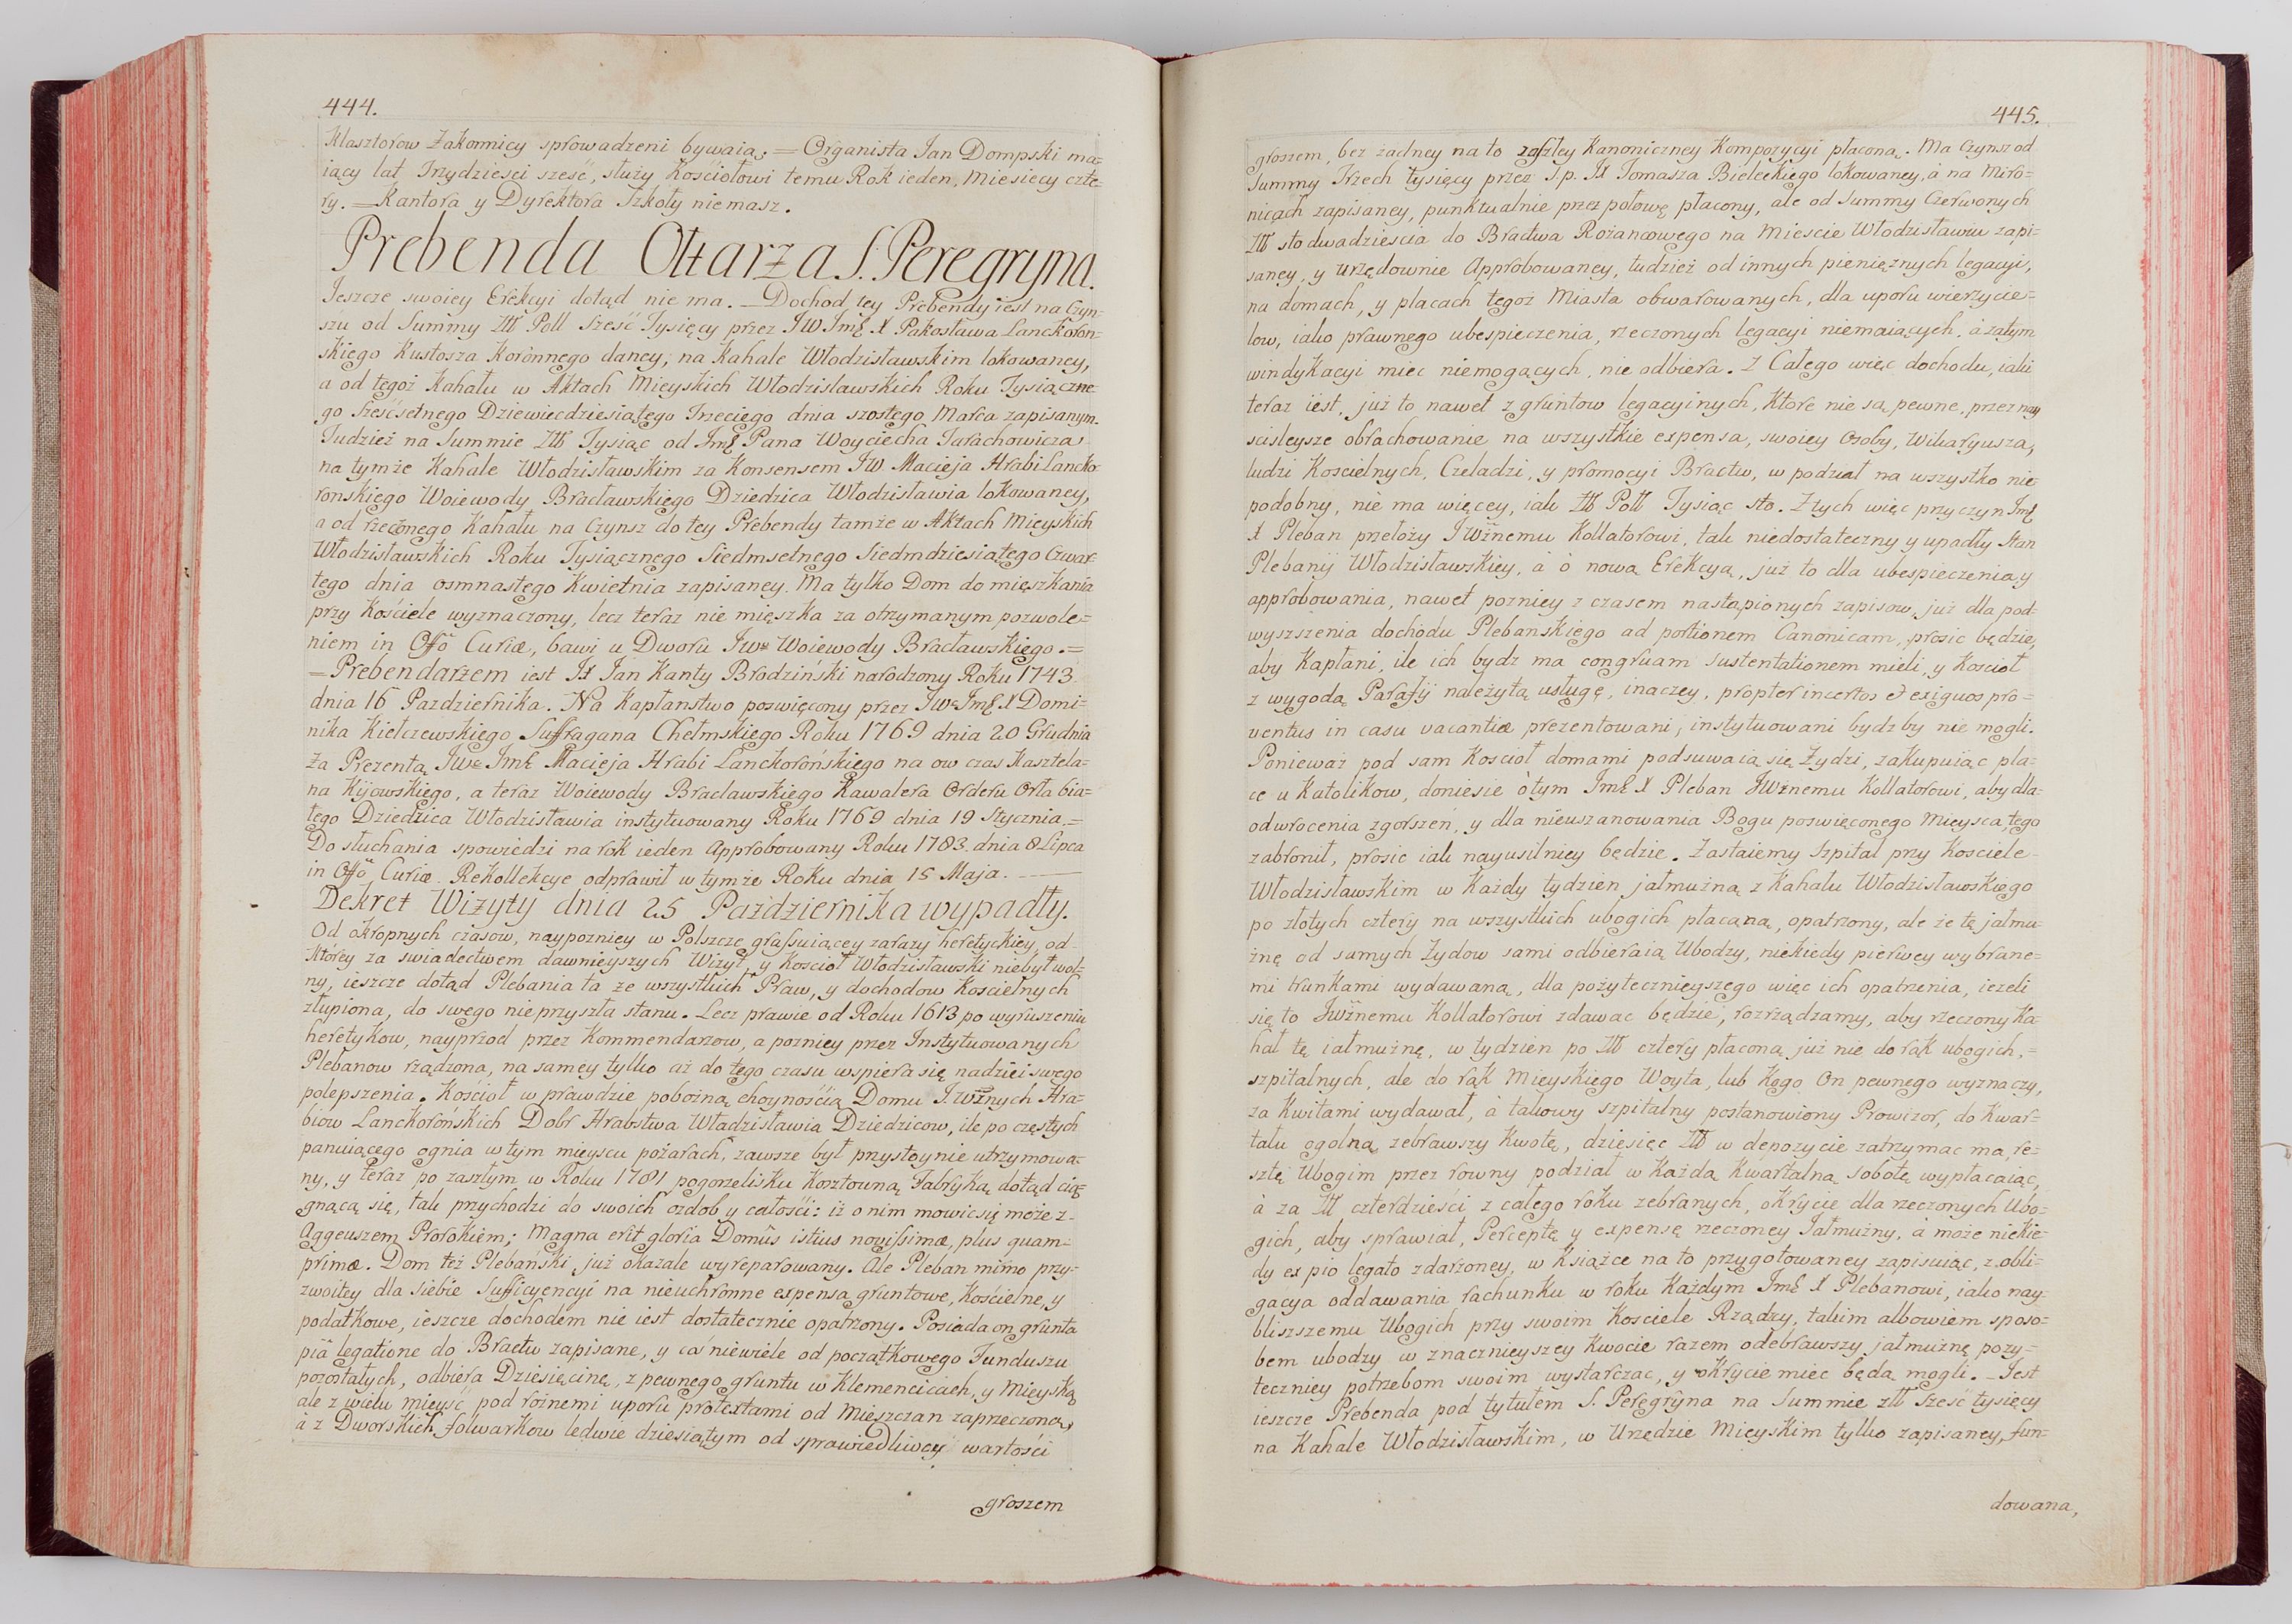 444.
Klasztorow Zakonnicy sprowadzeni bywaią; = Organista Jan Dompski ma=
iący lat Trzydzieści sześć, służy Kościołowi temu Rok ieden, Miesięcy czte=
ry. = Kantora y Dyrektora Szkoły niemasz.
Prebenda Ołtarza S. Peregryna.
Jeszcze swoiey Erekcyi dotąd nie ma. — Dochod tey Prebendy iest na Czyn=
szu od Summy Zlł Poll Sześć Tysięcy przez JW Jmę X Pakosława Lanckoron=
skiego Kustosza Koronnego daney, na Kahale Włodzisławskim lokowaney,
a od tegoż Kahału w Aktach Mieyskich Włodzisławskich Roku Tysiączne=
go Sześćsetnego Dziewiedziesiątego Trzeciego dnia szostego Marca zapisanym.
Tudzież na Summie Zlł Tysiąc od Jmę Pana Woyciecha Jarachowicza
na tymże Kahale Włodzisławskim za Konsensem JW Macieja Hrabi Lancko=
ronskiego Woiewody Bracławskiego Dziedzica Włodzisławia lokowaney,
a od rzeczonego Kahału na Czynsz do tey Prebendy tamże w Aktach Mieyskich
Włodzisławskich Roku Tysiącznego Siedmsetnego Siedmdziesiątego Czwar=
tego dnia osmnastego Kwietnia zapisaney. Ma tylko Dom do mięszkania
przy Kościele wyznaczony, lecz teraz nie mięszka za otrzymanym pozwole=
niem in Offo Curiæ, bawi u Dworu Jwo Woiewody Bracławskiego. =
= Prebendarzem iest JX Jan Kanty Brodziński narodzony Roku 1743
dnia 16 Pazdziernika. Na Kapłanstwo poswięcony przez Jwo Jmę X Domi=
nika Kiełczewskiego Suffragana Chełmskiego Roku 1769 dnia 20 Grudnia
Za Prezentą Jwo Jmę Macieja Hrabi Lanckorońskiego na ow czas Kasztela=
na Kijowskiego, a teraz Woiewody Bracławskiego Kawalera Orderu Orła bia=
łego Dziedzica Włodzisławia instytuowany Roku 1769 dnia 19 Stycznia. =
Do słuchania spowiedzi na rok ieden Approbowany Roku 1783 dnia 8 Lipca
in Offo Curiæ. Rekollekcye odprawił w tymże Roku dnia 15 Maja. —
Dekret Wizyty dnia 25 Października wypadły.
Od okropnych czasow, naypozniey w Polszcze grassuiącey zarazy heretyckiey, od
Ktorey za swiadectwem dawnieyszych Wizyt, y Kościoł Włodzisławski niebył wol=
ny, ieszcze dotąd Plebania ta ze wszystkich Praw, y dochodow Kościelnych
złupiona, do swego nieprzyszła stanu. Lecz prawie od Roku 1613 po wyruszeniu
heretykow, nayprzod przez Kommendarzow, a pozniey przez Instytuowanych
Plebanow rządzona, na samey tylko aż do tego czasu wspiera się nadziei swego
polepszenia. Kościoł w prawdzie pobożną choynością Domu J. Wżnych Hra=
biow Lanckorońskich Dobr Hrabstwa Władzisławia Dziedzicow, ile po częstych
panuiącego ognia w tym mieyscu pożarach, zawsze był przystoynie utrzymowa=
ny, y teraz po zaszłym w Roku 1781 pogorzelisku Kosztowną Fabryką dotąd cią=
gnącą się, tak przychodzi do swoich ozdob y całości: iż o nim mowić się może z
Aggeuszem Prorokiem; Magna erit gloria Domûs istius novissimæ, plus quam=
primæ. Dom też Plebański już okazale wyreparowany. Ale Pleban mimo przy=
zwoitey dla siebie Sufficyencyi na nieuchronne expensa gruntowe, Kościelne, y
podatkowe, ieszcze dochodem nie iest dostatecznie opatrzony. Posiada on grunta
piâ legatione do Bractw zapisane, y coś niewiele od początkowego Funduszu
pozostałych, odbiera Dziesięcinę, z pewnego gruntu w Klemencicach, y Mieyską
ale z wielu mieysc pod rożnemi uporu protextami od Mieszczan zaprzeczoną,
à z Dworskich folwarkow ledwie dziesiątym od sprawiedliwey wartości
groszem
445.
groszem, bez żadney na to zaszłey Kanoniczney Kompozycyi płaconą. Ma Czynsz od
Summy Trzech tysięcy przez S.p. JX Tomasza Bieleckiego lokowaney, à na Miro=
nicach zapisaney, punktualnie przez połowę płacony, ale od Summy Czerwonych
Zlł sto dwadzieścia do Bractwa Rożancowego na Mieście Włodzisławiu zapi=
saney, y urzędownie Approbowaney, tudzież od innych pieniężnych legacyi,
na domach, y placach tegoż Miasta obwarowanych, dla uporu wierzycie=
low, iako prawnego ubespieczenia, rzeczonych legacyi niemaiących, à zatym
windykacyi miec niemogących, nie odbiera. Z Całego więc dochodu, iaki
teraz iest, już to nawet z gruntow legacyinych, Ktore nie są pewne, przez nay
scisleysze obrachowanie na wszystkie expensa, swoiey Osoby, Wikaryusza,
ludzi Kościelnych, Czeladzi, y promocyi Bractw, w podział na wszystko nie
podobny, nie ma więcey, iak Zlł Poll Tysiąc sto. Z tych więc przyczyn Jmę
X Pleban przełoży JWżnemu Kollatorowi, tak niedostateczny y upadły stan
Plebanij Włodzisławskiey, à ò nową Erekcyą, już to dla ubespieczenia, y
approbowania, nawet pozniey z czasem nastąpionych zapisow, już dla pod=
wyszszenia dochodu Plebanskiego ad portionem Canonicam, prosic będzie,
aby Kapłani, ile ich bydz ma congruam sustentationem mieli, y Kościoł
z wygodą Parafij należytą usługę, inaczey, propter incertos et exiguos pro=
ventus in casu vacantiæ prezentowani, instytuowani bydzby nie mogli.
Ponieważ pod sam Kościoł domami podsuwaią się Żydzi, zakupuiąc pla=
ce u Katolikow, doniesie òtym Jmę X Pleban JWżnemu Kollatorowi, aby dla
odwrocenia zgorszeń, y dla nieuszanowania Bogu poswięconego Mieysca, tego
zabronił, prosic iak nayusilniey będzie. Zastaiemy Szpital przy Kościele
Włodzisławskim w Każdy tydzien jałmużną z Kahału Włodzisławskiego
po złotych cztery na wszystkich ubogich płacaną, opatrzony, ale że tę jałmu=
żnę od samych Żydow sami odbieraią Ubodzy, niekiedy pierwey wybrane=
mi trunkami wydawaną, dla pożytecznieyszego więc ich opatrzenia, ieżeli
się to JWżnemu Kollatorowi zdawac będzie, rozrządzamy, aby rzeczony Ka=
hał tę iałmużnę, w tydzien po Zlł cztery płaconą już nie do rąk ubogich, =
szpitalnych, ale do rąk Mieyskiego Woyta, lub Kogo On pewnego wyznaczy,
za Kwitami wydawał, à takowy szpitalny postanowiony Prowizor, do Kwar=
tału ogolną zebrawszy Kwotę, dziesięc Zlł w depozycie zatrzymac ma, re=
sztę Ubogim przez rowny podział w Każdą Kwartalną sobotę wypłacaiąc,
à za Zlł czterdzieści z całego roku zebranych, okrycie dla rzeczonych Ubo=
gich, aby sprawiał, Perceptę y expensę rzeczoney Jałmużny, à może niekie=
dy ex pio legato zdarzoney, w Książce na to przygotowaney zapisuiąc, z obli=
gacya oddawania rachunku w roku Każdym Jmę X Plebanowi, iako nay=
bliszszemu Ubogich przy swoim Kościele Rządzy, takim albowiem sposo=
bem ubodzy w znacznieyszey Kwocie razem odebrawszy jałmużnę poży=
teczniey potrzebom swoim wystarczac, y okrycie miec będą mogli. — Jest
ieszcze Prebenda pod tytułem S. Peregryna na Summie złł sześć tysięcy
na Kahale Włodzisławskim, w Urzędzie Mieyskim tylko zapisaney, fun=
dowana,